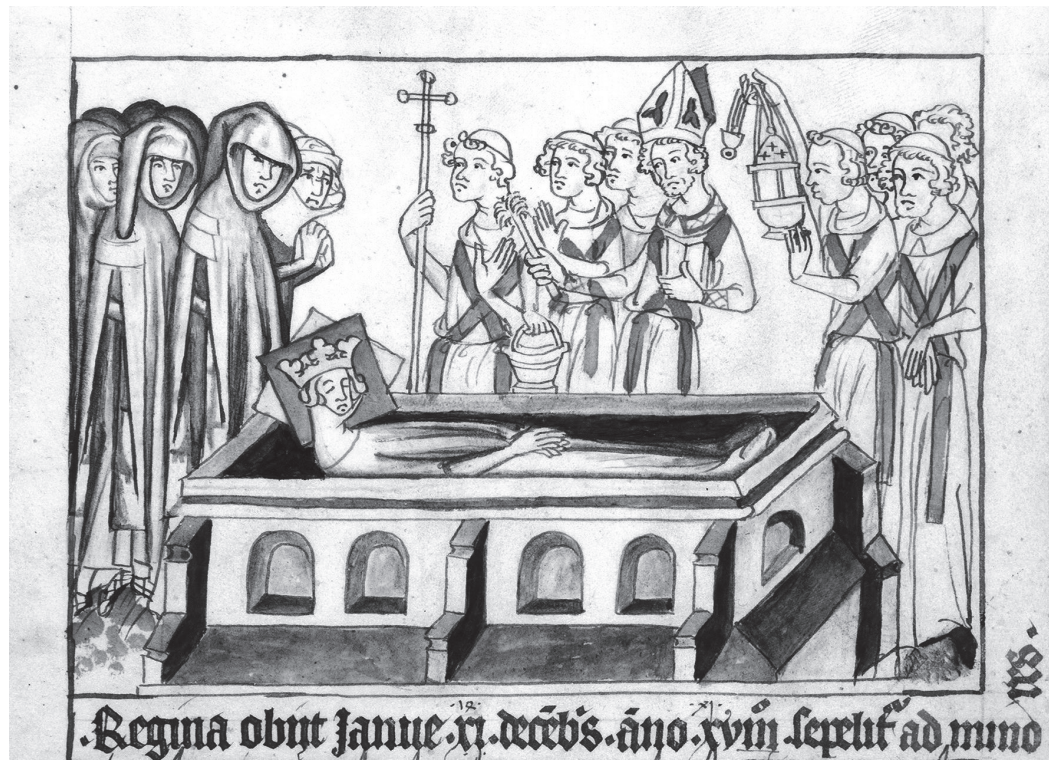 .Regina obijt Janue .xi. decēb's. āno sepelit' ad mino
res.